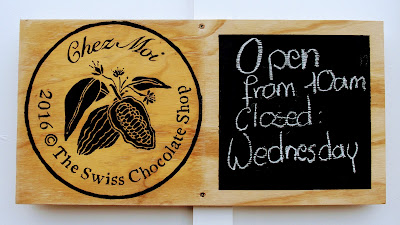 Chez Moi
2016 © The Swiss Chocolate Shop
Open
from 10am
closed:
Wednesday